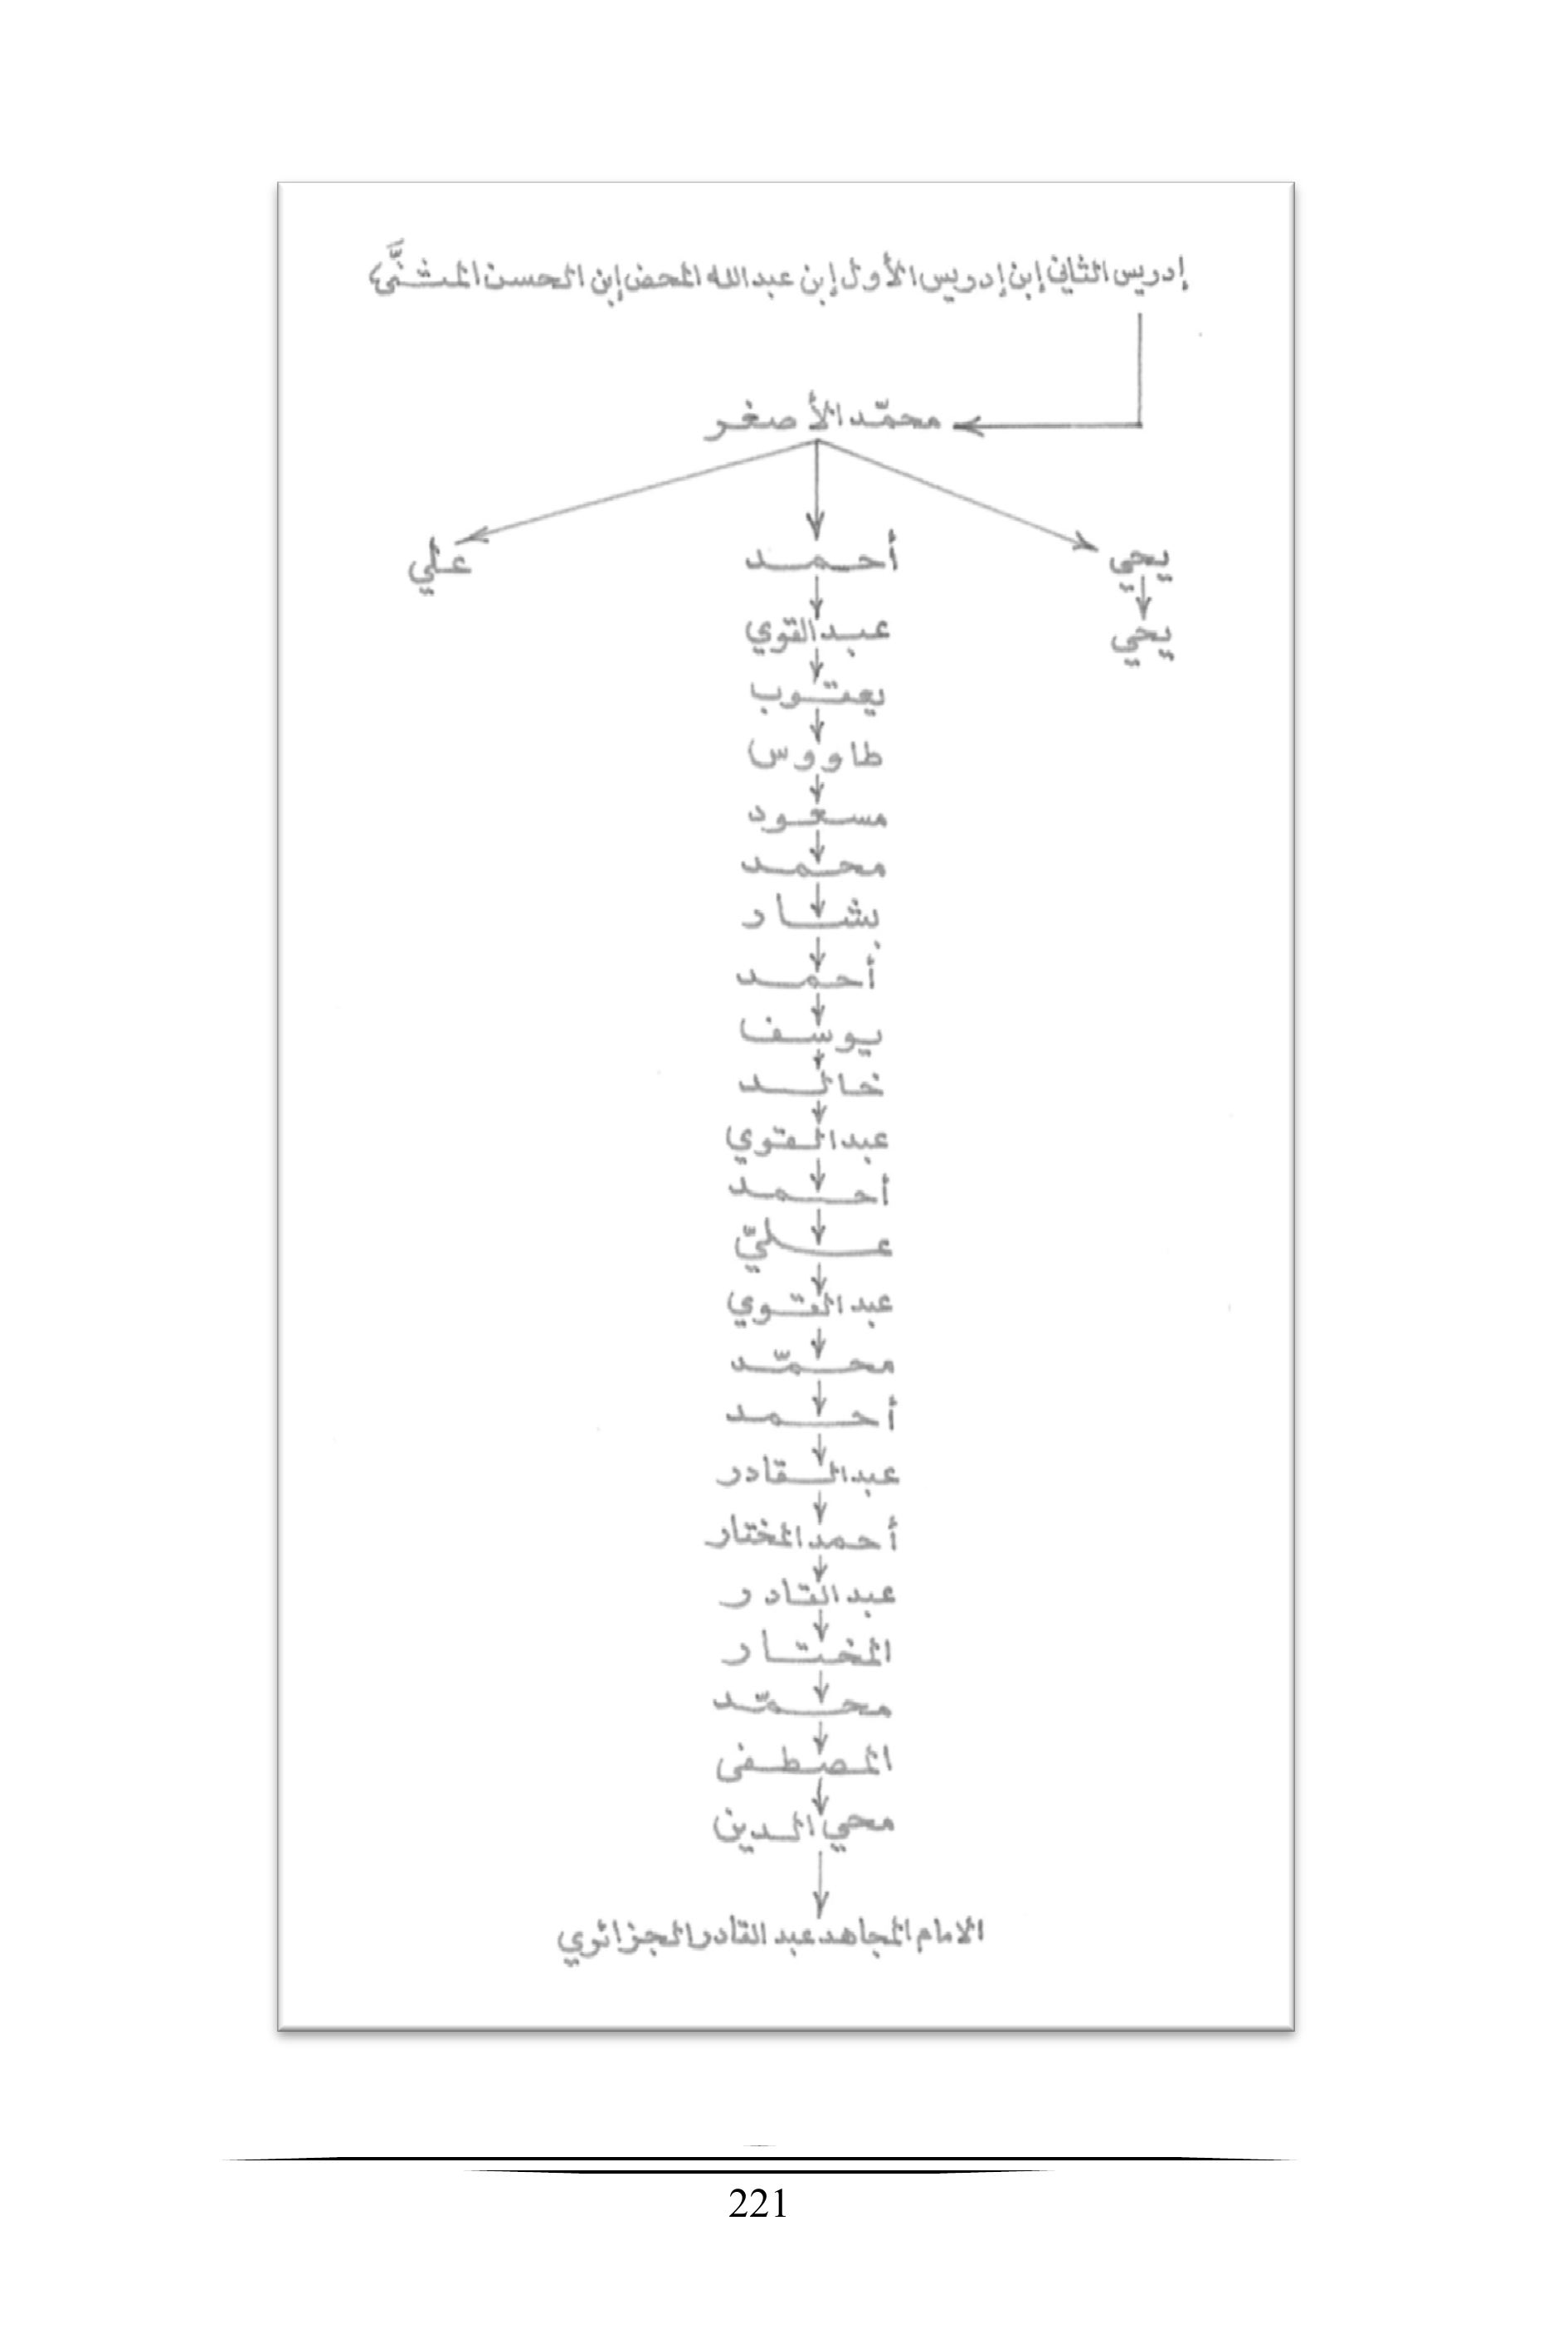 إدريس الثاني إبن إدريس الأول إبن عبد الله المحض إبن الحسن المثنَّى
محمّد الأصغر
يحي
أحمد
علي
يحي
عبد القوي
يعقوب
طاووس
مسعود
محمد
بشار
أحمد
يوسف
خالد
عبد القوي
أحمد
عليّ
عبد القوي
محمّد
أحمد
عبد القادر
أحمد المختار
عبد القادر
المختار
محمّد
المصطفى
محي الدين
الامام المجاهد عبد القادر الجزائري
221